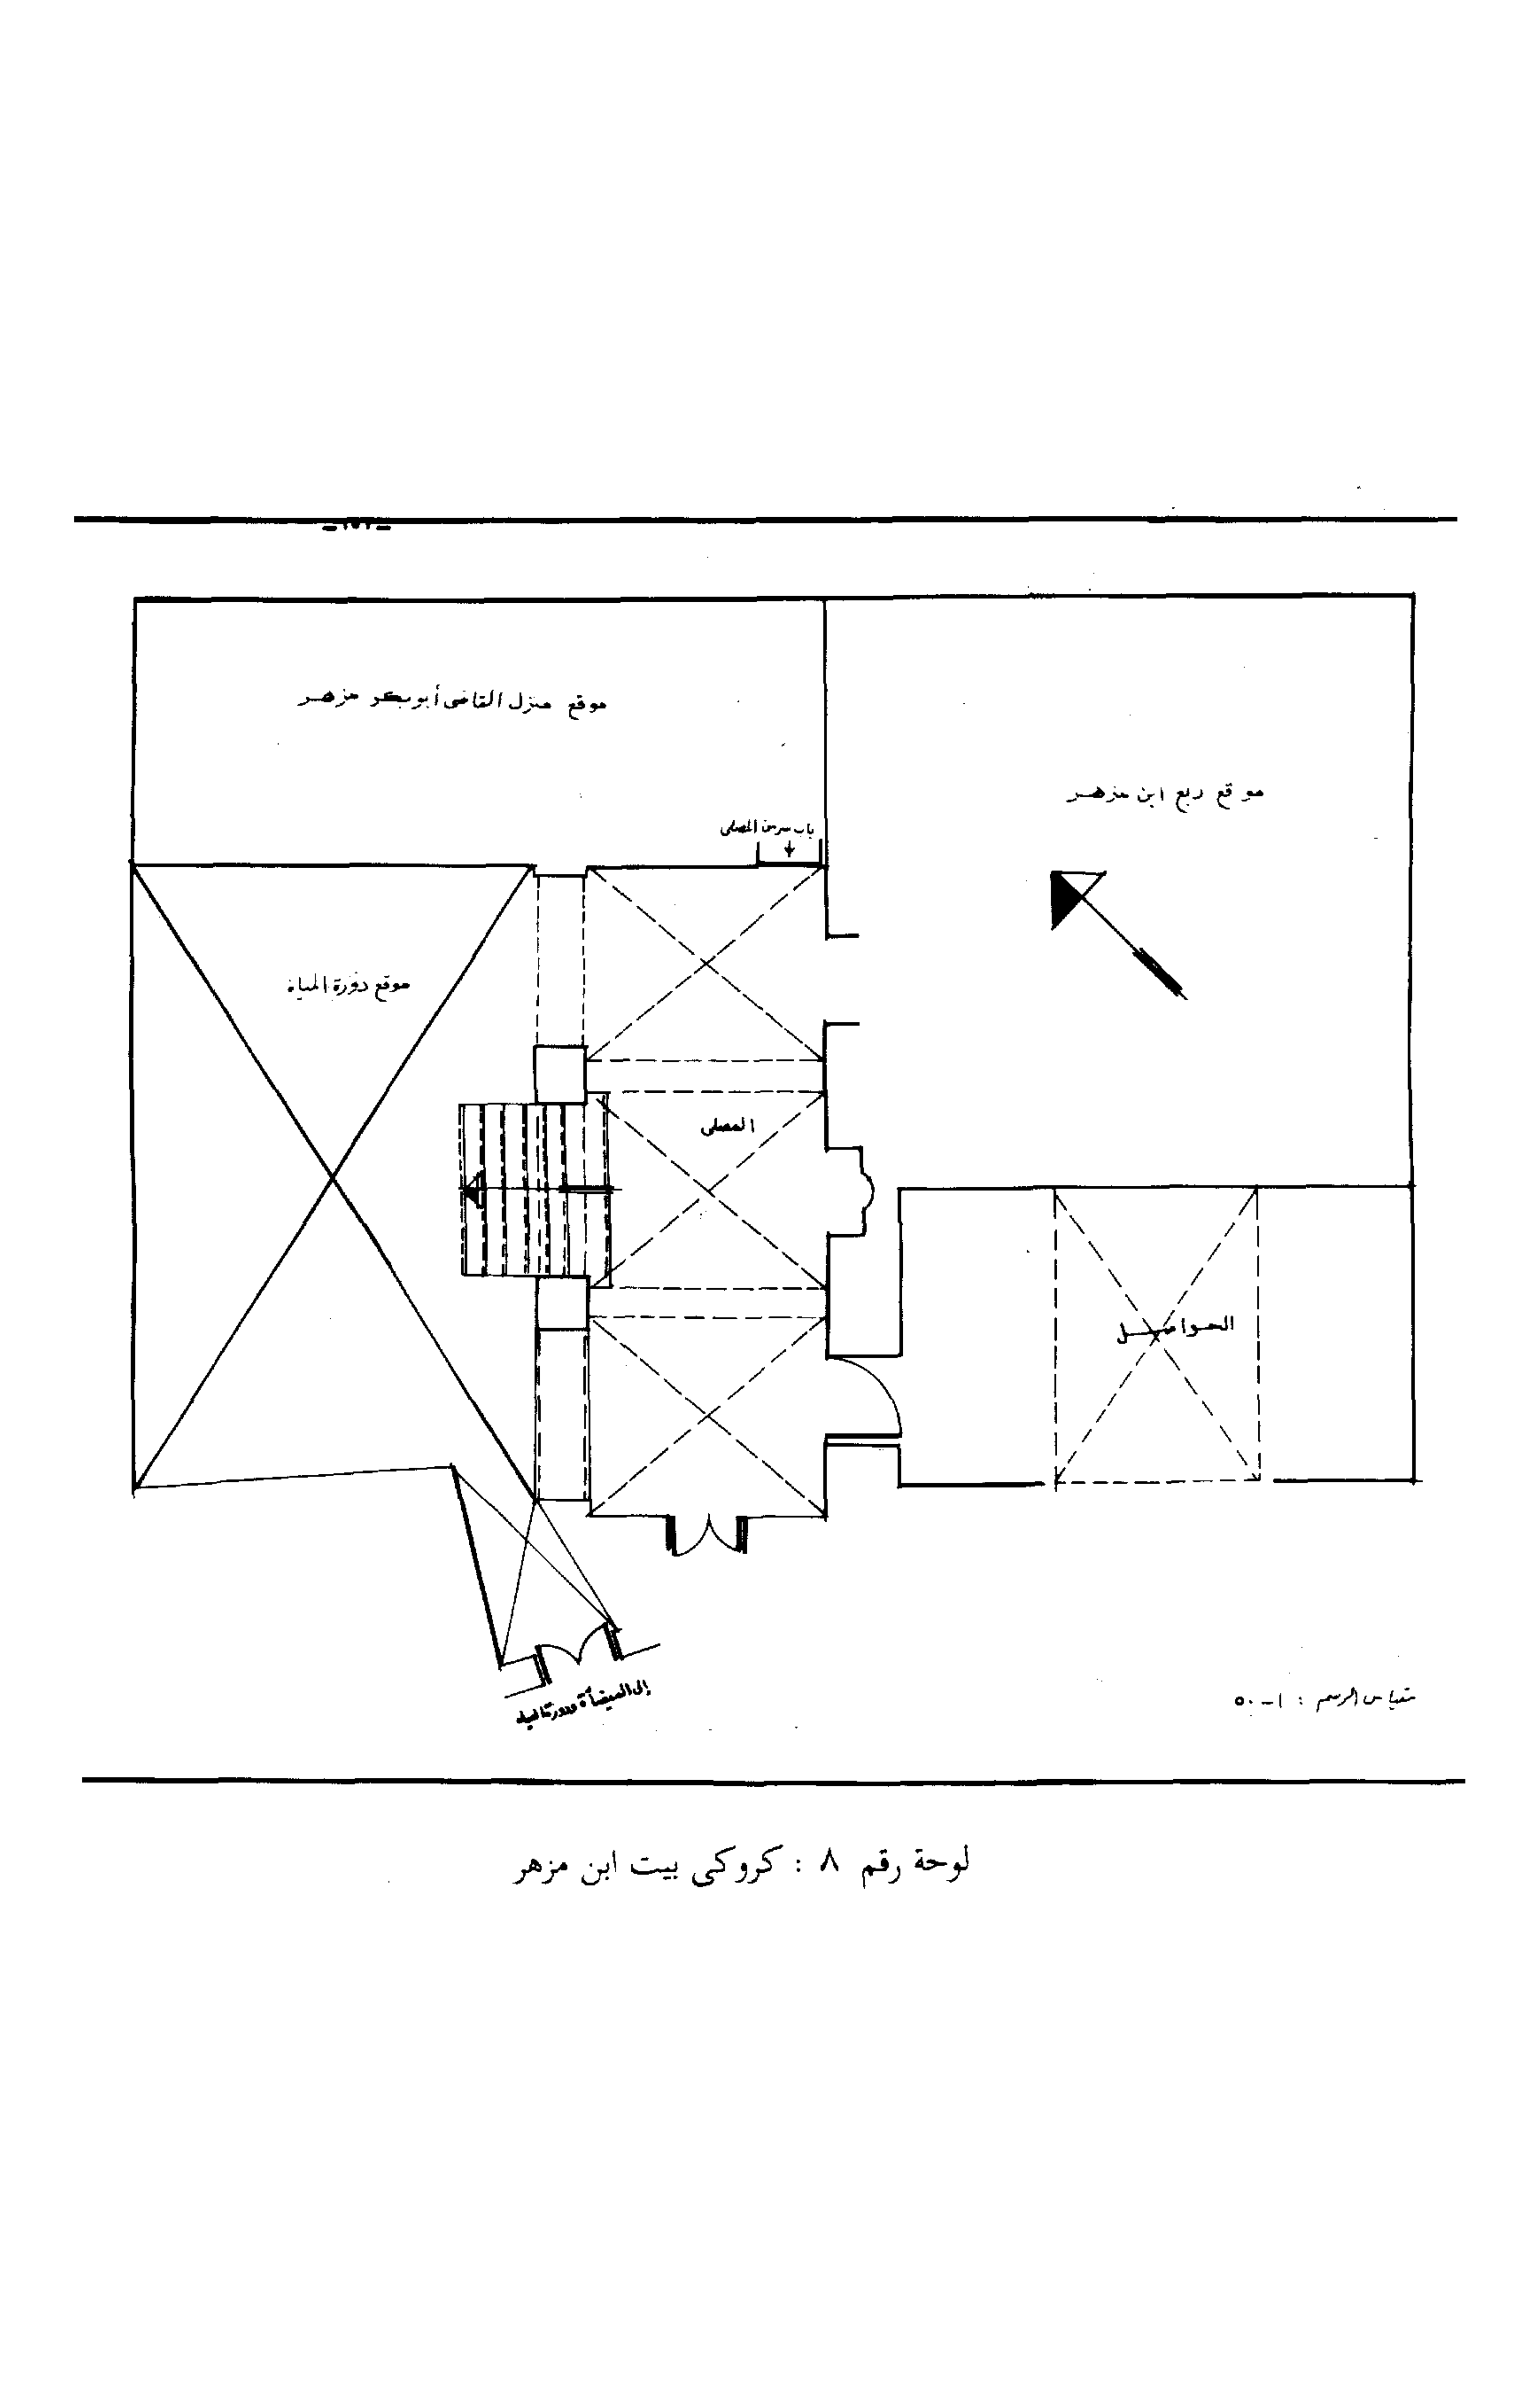 موقع منزل القاضى أبو بكر مزهر
موقع ربع ابن مزهر
باب سر من المصلى
موقع دورة المياة
المصلى
الحواصل
إلى الميضأة ودورة المياه
مقياس الرسم : ١-٥٠
لوحة رقم ٨ : كروكى بيت ابن مزهر